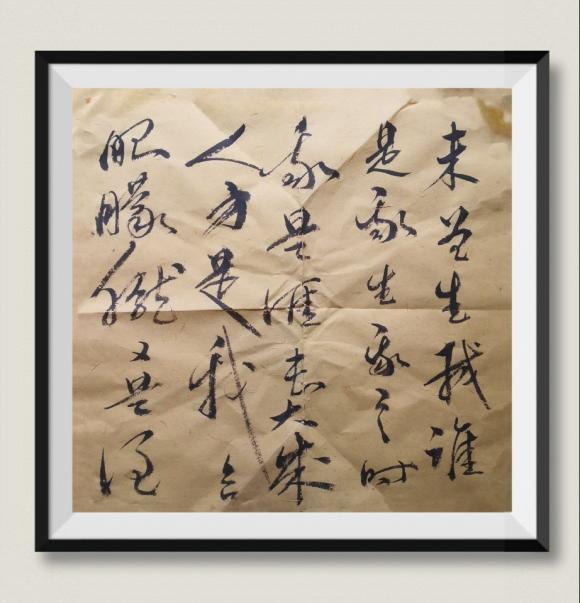 未曾生我谁
是我生我之时
我是谁长大成
人方是我合
眼朦胧又是谁